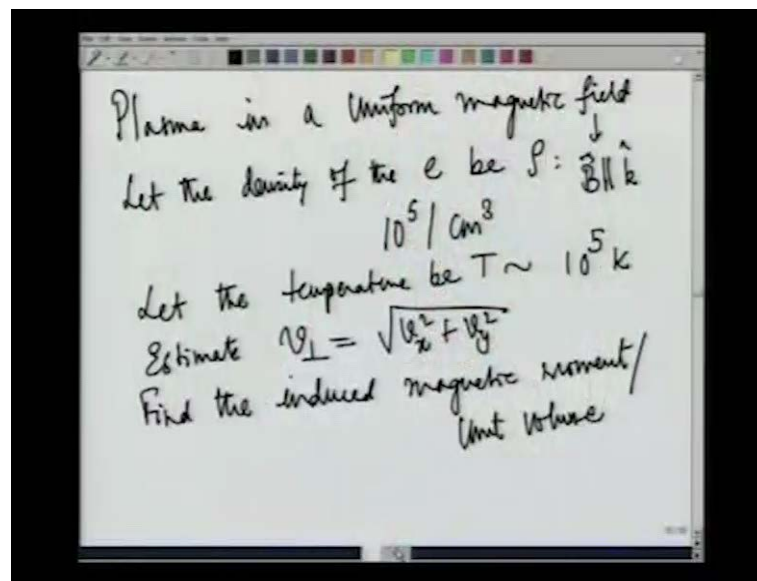 Plasma in a Uniform magnetic field
↓
Let the density of the e be ρ : B̂ || k̂
10⁵ / cm³
Let the temperature be T ~ 10⁵ K
Estimate v⊥ = √(v_x² + v_y²)
Find the induced magnetic moment/
Unit volume